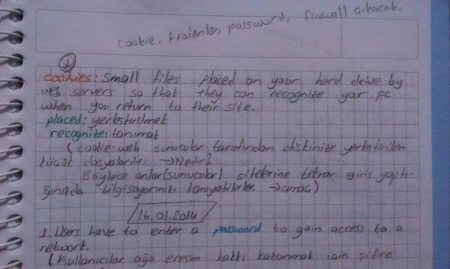 cookie, trojenler, password, firewall çıkacak.
cookies: Small files placed on your hard drive by
web servers so that they can recognize your pc
when you return to their site.
placed: yerleştirilmek
recognize: tanımak
(cookie: web sunucular tarafından diskinize yerleştirilen
küçük dosyalardır. → Nedir?
Böylece onlar (sunucular) sitelerine tekrar giriş yaptı-
ğınızda bilgisayarınızı tanıyabilirler. → amac)
16.01.2014
1. Users have to enter a password to gain access to a
network.
(Kullanıcılar ağa erişim hakkı kazanmak için şifre